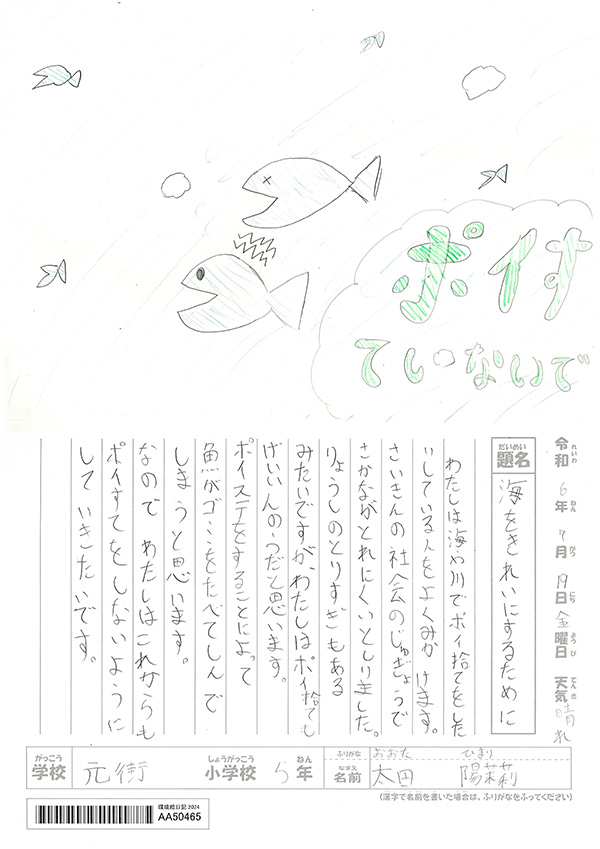 ポイす
てしないで
令和6年7月19日金曜日 天気晴れ
れいわ ねん がつ にち よう び てん き
だいめい
題名 海をきれいにするために
わたしは海や川でポイ捨てをした
りしている人をよくみかけます。
さいきんの社会のじゅぎょうで
さかながとれにくいとしりました。
りょうしのとりすぎもある
みたいですが、わたしはポイ捨ても
げいいんの一つだと思います。
ポイステをすることによって
魚がゴミをたべてしんで
しまうと思います。
なので わたしはこれからも
ポイすてをしないように
していきたいです。
がっこう しょうがっこう ねん ふりがな おおた ひまり
学校 元街 小学校 5年 なまえ 名前 太田 陽茉莉
(漢字で名前を書いた場合は、ふりがなをふってください)
環境絵日記 2024
AA50465